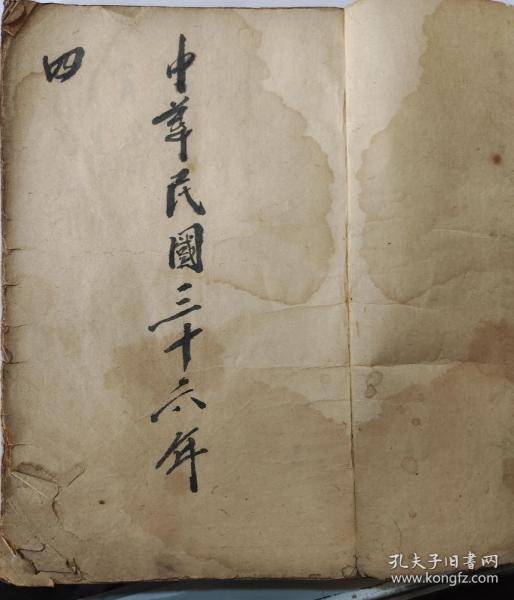 中華民國三十六年
四
孔夫子旧书网
www.kongfz.com